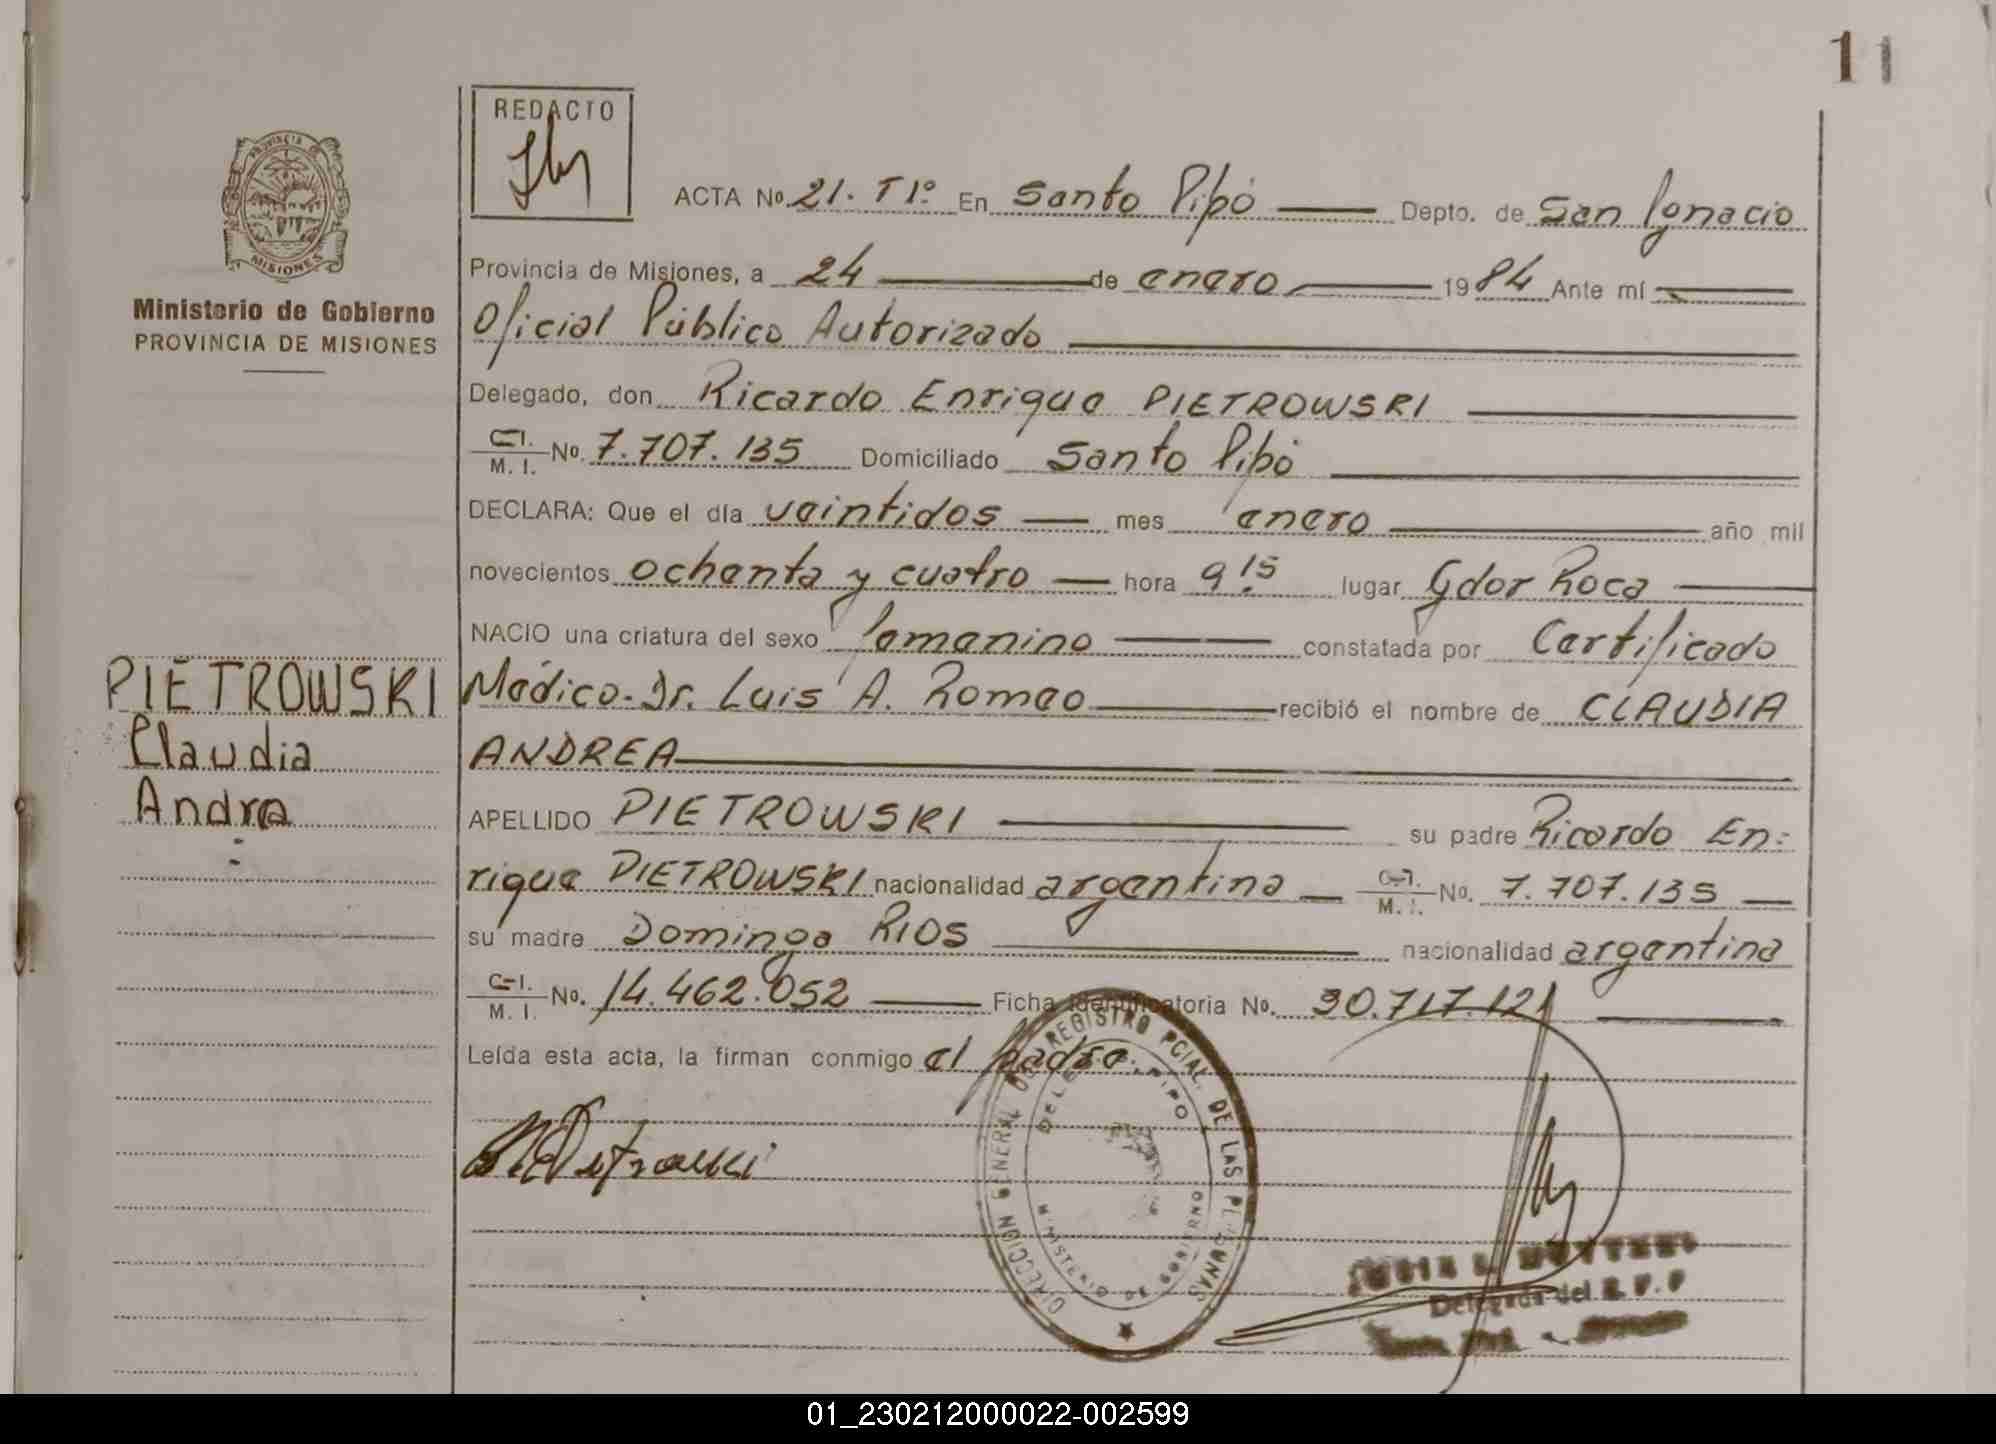 11
REDACTO
PROVINCIA DE
MISIONES
Ministerio de Gobierno
PROVINCIA DE MISIONES
ACTA No. 21. T1º. En Santo Pipó Depto. de San Ignacio
Provincia de Misiones, a 24 de enero 1984 Ante mí
Oficial Público Autorizado
Delegado, don Ricardo Enrique PIETROWSKI
C.I. M. I. No. 7.707.135 Domiciliado Santo Pipó
DECLARA: Que el día veintidos mes enero año mil
novecientos ochenta y cuatro hora 9.15 lugar Gdor Roca
NACIO una criatura del sexo femenino constatada por Certificado
Médico-Dr. Luis A. Romeo recibió el nombre de CLAUDIA
ANDREA
PIETROWSKI
Claudia
Andrea
APELLIDO PIETROWSKI su padre Ricardo En-
rique PIETROWSKI nacionalidad argentina C.I. M. I. No. 7.707.135
su madre Dominga RIOS nacionalidad argentina
C.I. M. I. No. 14.462.052 Ficha Identificatoria No. 30.717.121
Leída esta acta, la firman conmigo el padre.
DIRECCION GENERAL DEL REGISTRO PCIAL. DE LAS PERSONAS
MINISTERIO DE GOBIERNO
Delegada del R. P. P
01_230212000022-002599